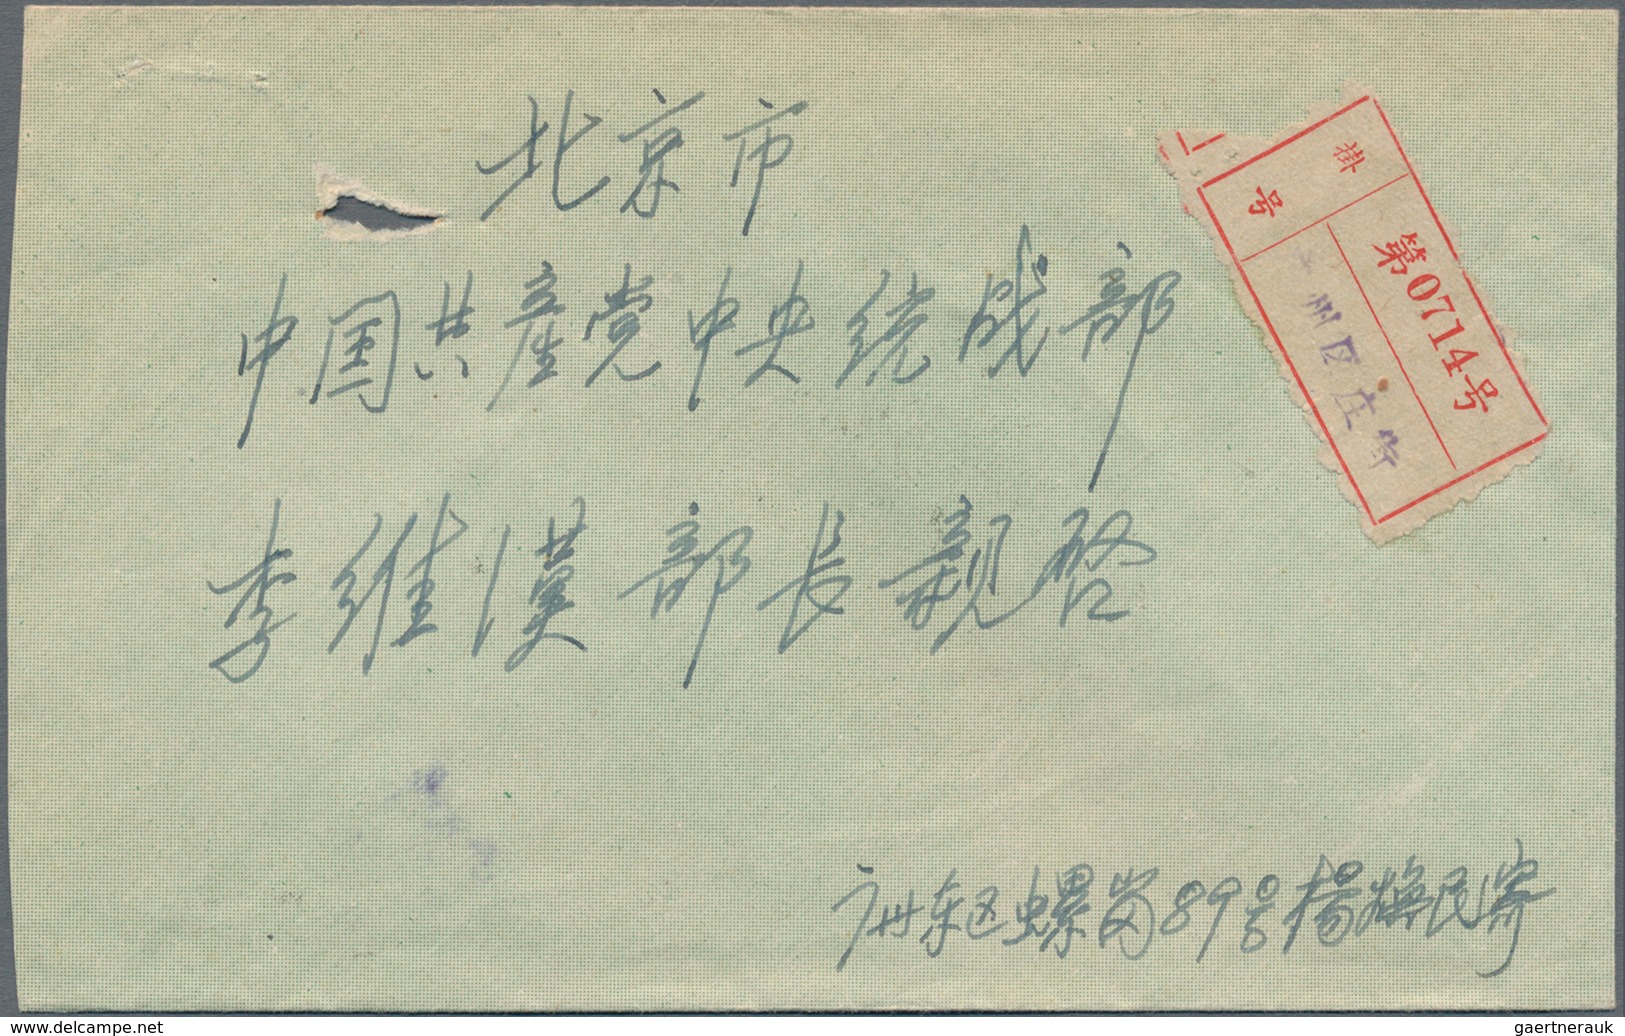 北京市
中国共產党中央统战部
李維漢部長親啓
广州东区螺岗89号楊焕民寄
掛号
第0714号
州区庄
© www.delcampe.net
gaertnerauk